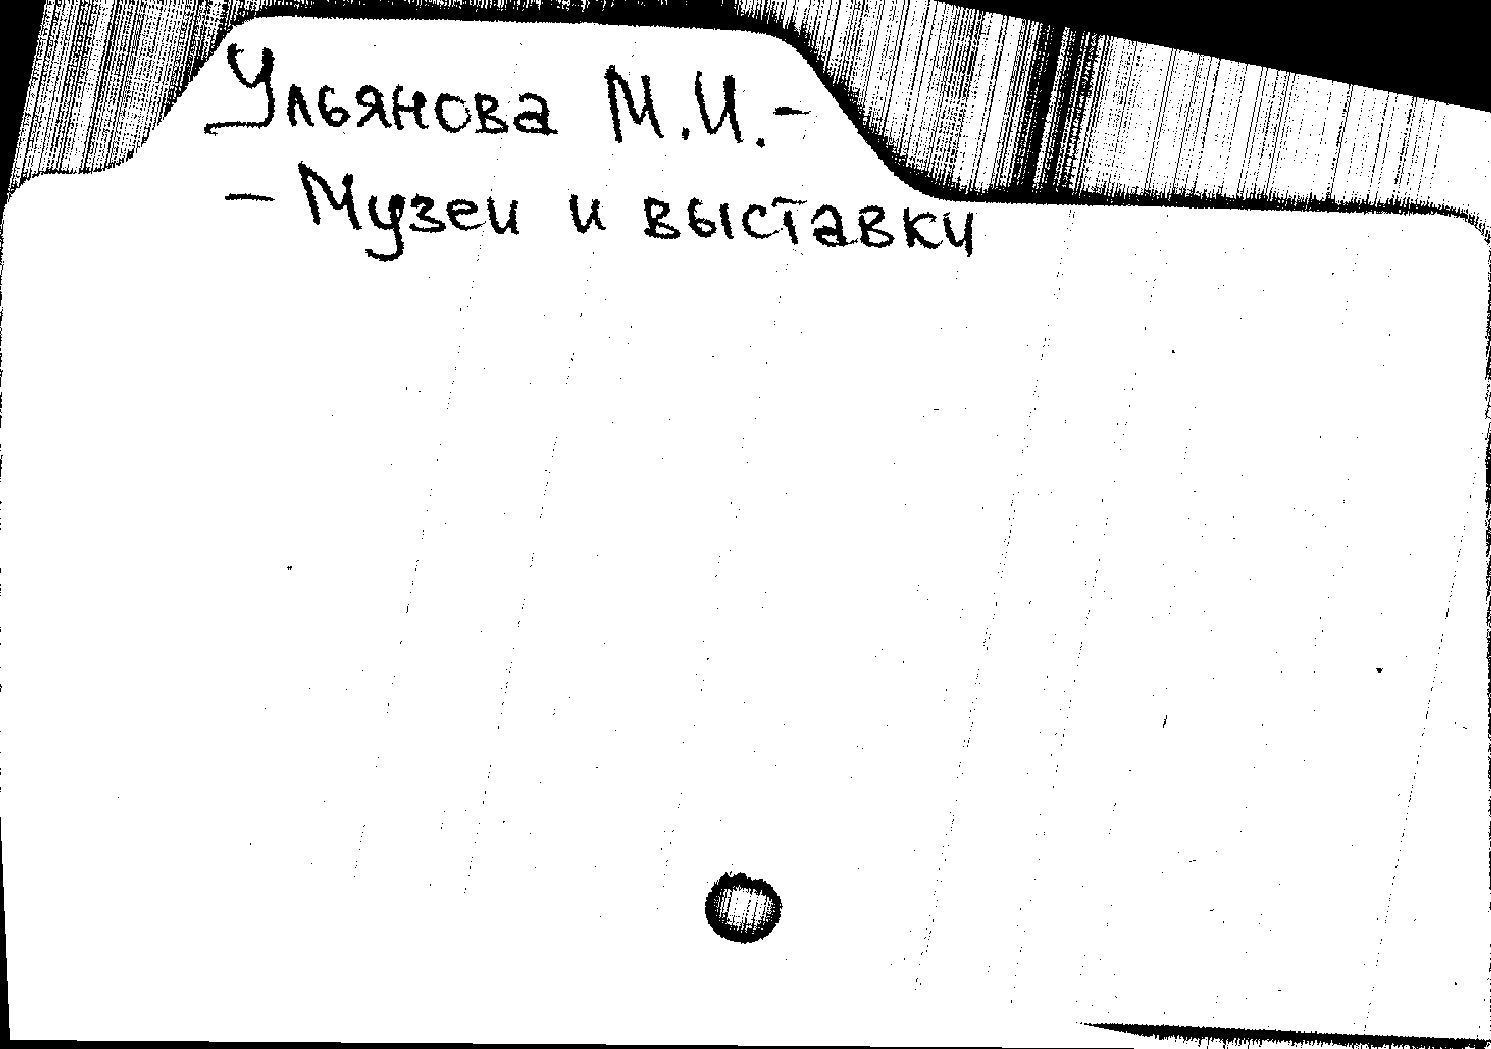 Ульянова М.И.-
- Музеи и выставки